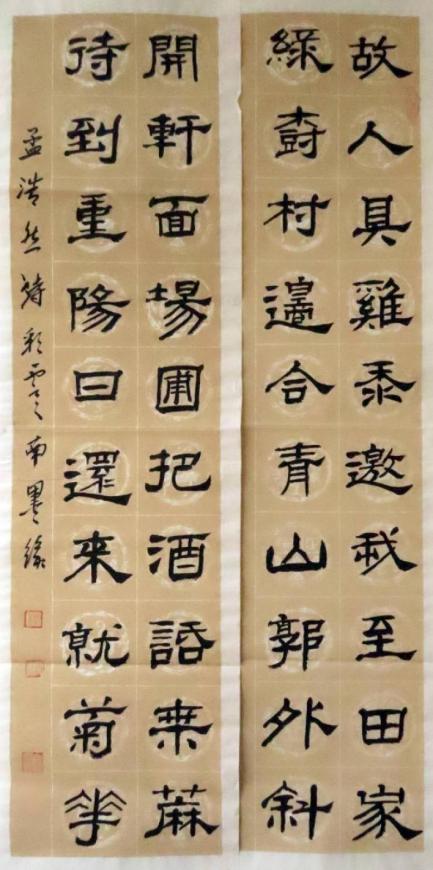 故人具雞黍邀我至田家
綠樹村邊合青山郭外斜
開軒面場圃把酒話桒麻
待到重陽日還來就菊華
孟浩然詩彩雲之南墨緣